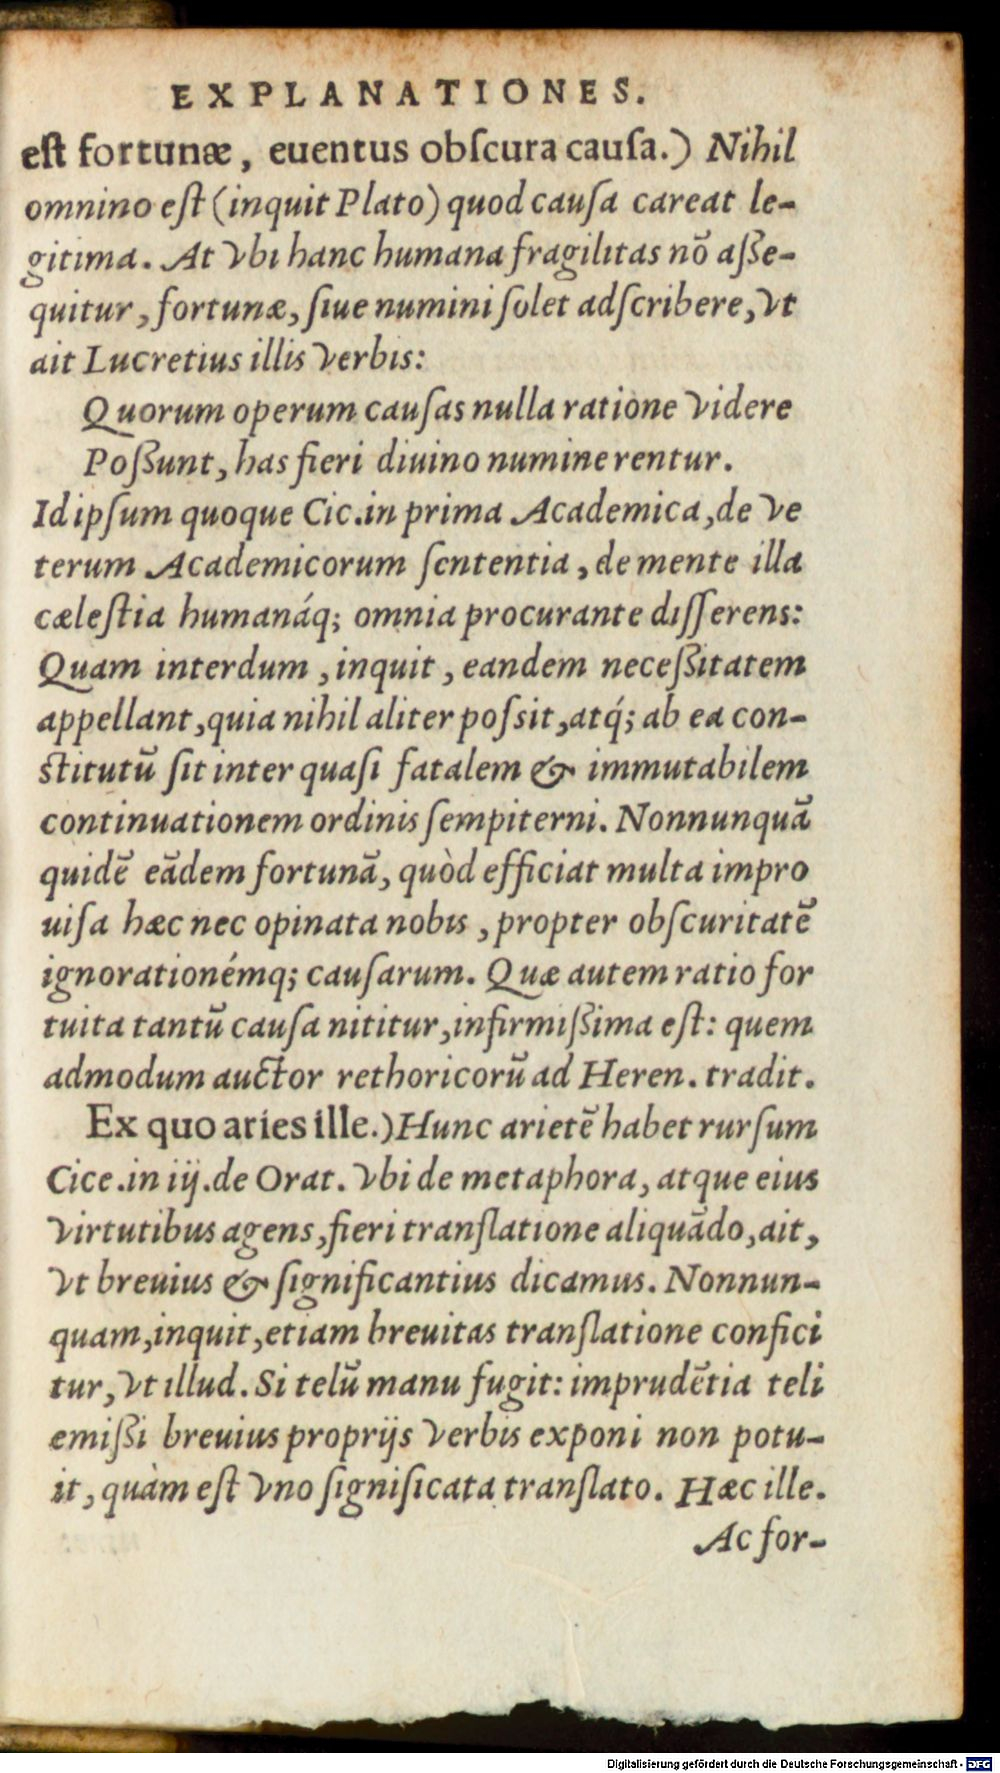 EXPLANATIONES.
est fortunæ, euentus obſcura cauſa.) Nihil
omnino eſt (inquit Plato) quod cauſa careat le-
gitima. At vbi hanc humana fragilitas nō aſſe-
quitur, fortunæ, ſiue numini ſolet adſcribere, vt
ait Lucretius illis verbis:
Quorum operum cauſas nulla ratione videre
Poſſunt, has fieri diuino numine rentur.
Id ipſum quoque Cic. in prima Academica, de ve
terum Academicorum ſententia, de mente illa
cæleſtia humanáq; omnia procurante diſſerens:
Quam interdum, inquit, eandem neceſſitatem
appellant, quia nihil aliter poſsit, atq́; ab ea con-
ſtitutū ſit inter quaſi fatalem & immutabilem
continuationem ordinis ſempiterni. Nonnunquā
quidē eādem fortunā, quòd efficiat multa impro
uiſa hæc nec opinata nobis, propter obſcuritatē
ignorationémq; cauſarum. Quæ autem ratio for
tuita tantū cauſa nititur, infirmiſſima eſt: quem
admodum auctor rethoricorū ad Heren. tradit.
Ex quo aries ille.) Hunc arietē habet rurſum
Cice. in iij. de Orat. vbi de metaphora, atque eius
virtutibus agens, fieri tranſlatione aliquādo, ait,
vt breuius & ſignificantius dicamus. Nonnun-
quam, inquit, etiam breuitas tranſlatione confici
tur, vt illud. Si telū manu fugit: imprudētia teli
emiſſi breuius proprijs verbis exponi non potu-
it, quàm eſt vno ſigniſicata tranſlato. Hæc ille.
Ac for-
Digitalisierung gefördert durch die Deutsche Forschungsgemeinschaft - DFG